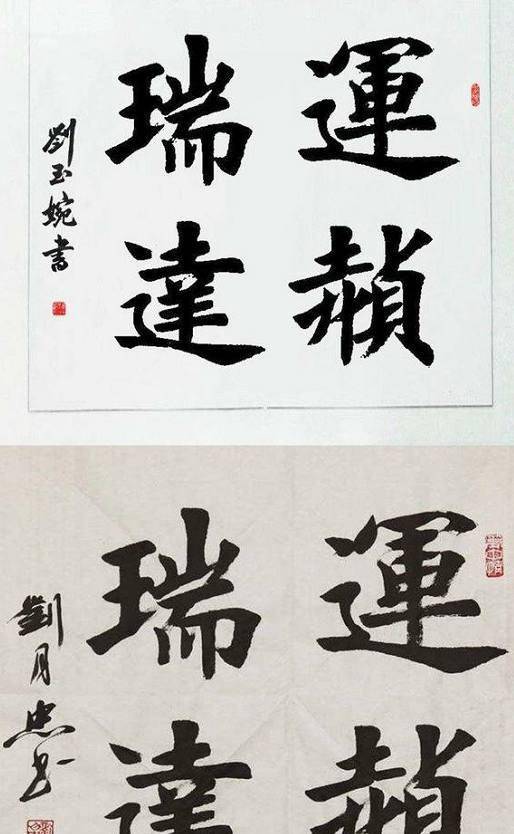 運赬
瑞達
劉玉婉書
運赬
瑞達
劉月忠书